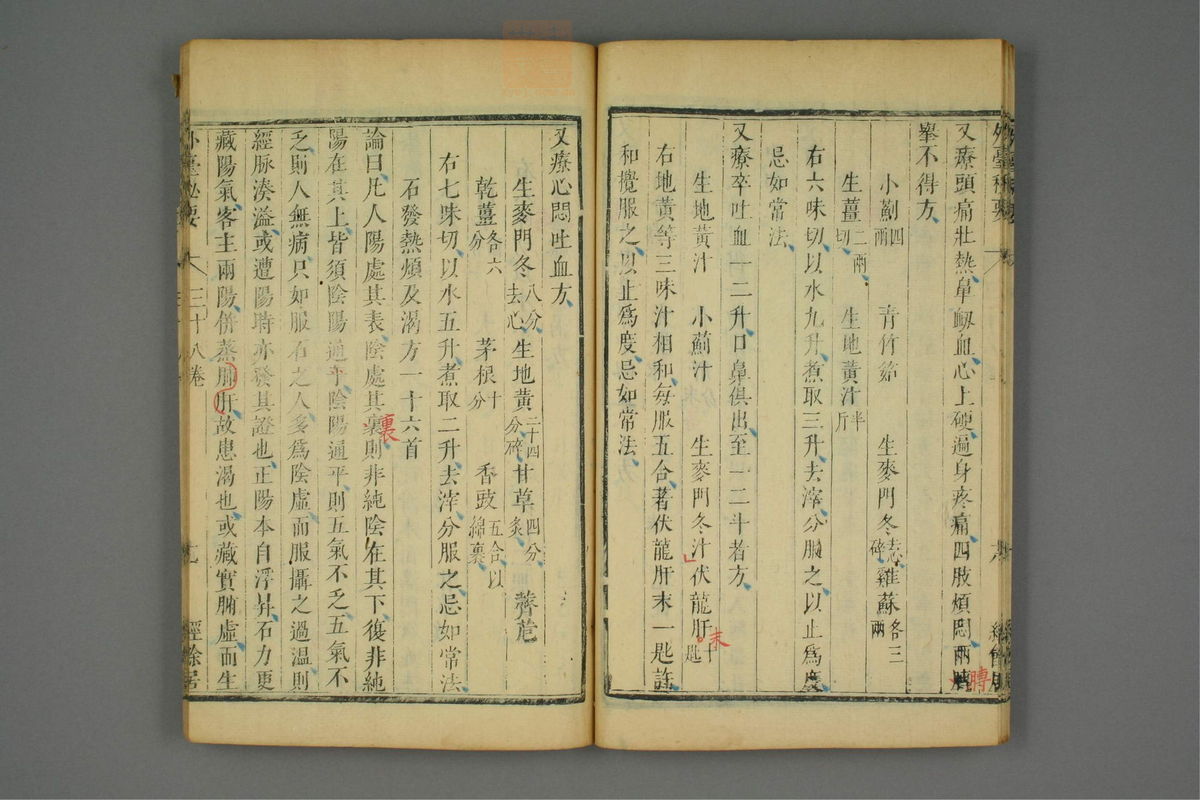 又療頭痛壯熱鼻衂血心上硬遍身疼痛四肢煩悶兩
舉不得方
小薊四兩 青竹 生麥門冬去心碎 雞蘇各三兩
生薑二兩切 生地黃汁半斤
右六味切以水九升煮取三升去滓分服之以止爲度
忌如常法
又療卒吐血一二升口鼻俱出至一二斗者方
生地黃汁 小薊汁 生麥門冬汁 伏龍肝十匙
末
右地黃等三味汁相和每服五合著伏龍肝末一匙
和攪服之以止爲度忌如常法
又療心悶吐血方
生麥門冬八分去心 生地黃二十四分碎 甘草四分炙 薺苨
乾薑各六分 茅根十分 香豉五合以綿裹
右七味切以水五升煮取二升去滓分服之忌如常法
石發熱煩及渴方一十六首
論曰凡人陽處其表陰處其裏則非純陰在其下復非純
裏
陽在其上皆須陰陽通乎陰陽通平則五氣不乏五氣不
乏則人無病只如服石之人多爲陰虛而服攝之過溫則
經脉湊溢或遭陽時亦發其證也正陽本自浮昇石力更
藏陽氣客主兩陽併蒸肺肝故患渴也或藏實腑虛而生
外臺秘要 三十八卷 經餘居